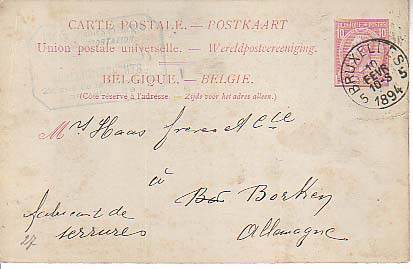 CARTE POSTALE. — POSTKAART
Union postale universelle. — Wereldpostvereeniging.
BELGIQUE. — BELGIE.
(Côté réservé à l'adresse. — Zijde voor het adres alleen.)
10 10
BRUXELLES 5
10
FEVR
10-S
1894
5
Mrs Haas frères & Cie
à Bo Borken
fabricant de
serrures
Allemagne
27